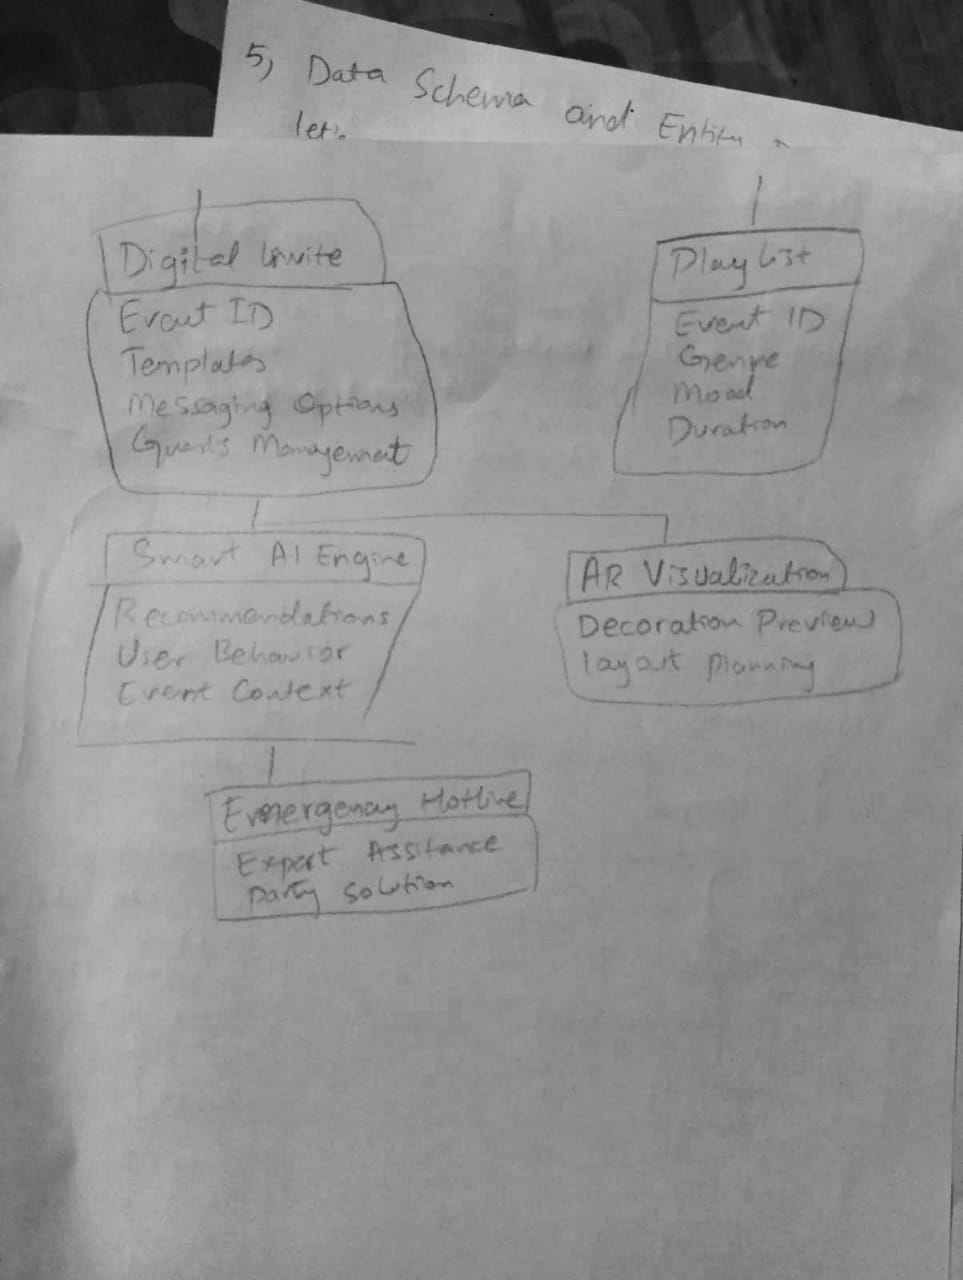 5) Data Schema and Entity
Digital Invite
Event ID
Templates
Messaging Options
Guests Management
Playlist
Event ID
Genre
Mood
Duration
Smart AI Engine
Recommendations
User Behavior
Event Context
AR Visualization
Decoration Preview
layout planning
Emergency Hotline
Expert Assitance
party solution